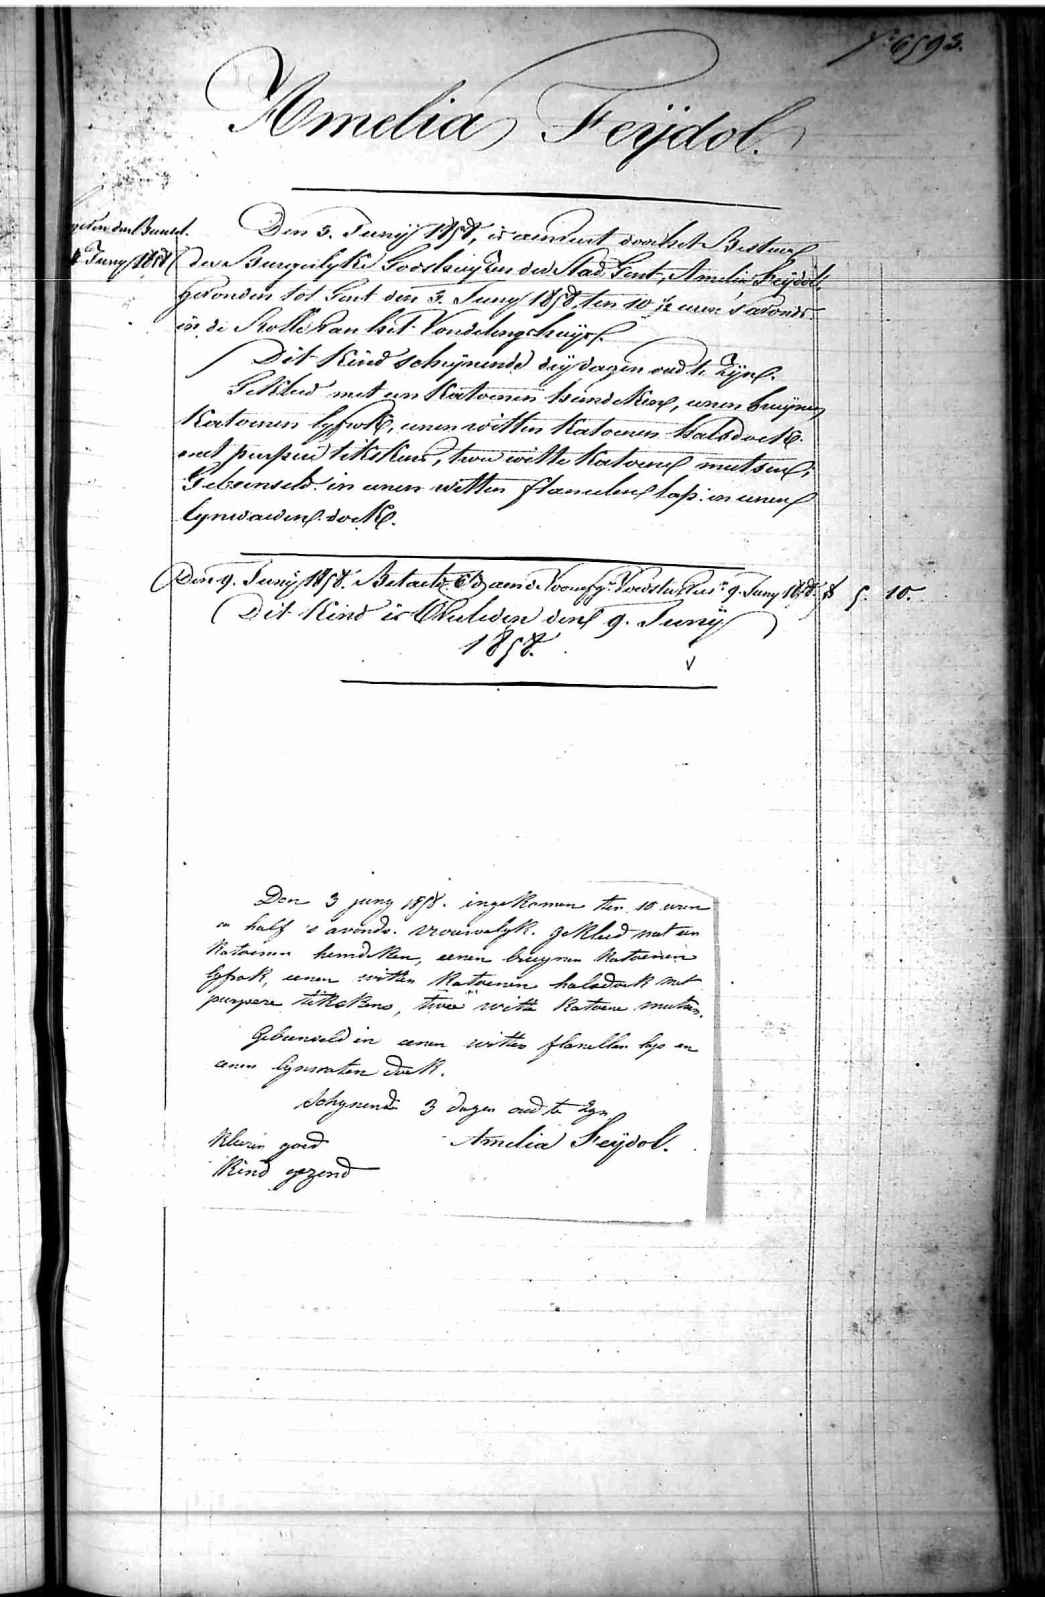 N.º 6593.
Amelia Feÿdol.
Den 3. Junÿ 1858, is aenveert door het Bestuer
4 Juny 1858
der Burgerlyke Godshuyzen der Stad Gent, Amelia Feÿdol,
gevonden tot Gent den 3. Juny 1858, ten 10 ½ uren 's avonds
in de Rolle van het Vondelingshuys.
Dit Kind schynende dry dagen oud te zyn.
Gekleed met een Katoenen hemdeken, eenen bruynen
Katoenen lyfrok, eenen witten Katoenen halsdoek
met purpere tikskens, twee witte Katoene mutsen,
Gebonseld in eenen witten flanellen lap en eenen
lynwaeden doek.
Den 9. Junÿ 1858. Betaeld aen de Voedster 9. Juny 1858. 5. 10.
Dit Kind is Overleden den 9. Junÿ
1858.
Den 3 juny 1858. ingekomen ten 10 uren
en half 's avonds. vrouwelyk. gekleed met een
Katoenen hemdeken, eenen bruynen Katoenen
lyfrok, eenen witten Katoenen halsdoek met
purpere tikskens, twee witte Katoene mutsen.
Gebunseld in eenen witten flanellen lap en
eenen lynwaten doek.
Schynende 3 dagen oud te zyn
Amelia Feÿdol.
Kleeren goed
Kind gezond